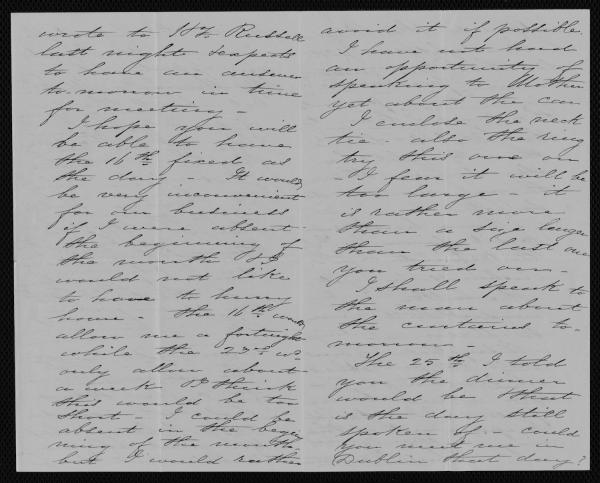 wrote to Wm Russell
last night & expects
to have an answer
to-morrow in time
for meeting -
I hope you will
be able to have
the 16th fixed as
the day - It would
be very inconvenient
for our business
if I were absent
the beginning of
the month & I
would not like
to have to hurry
home - the 16th would
allow me a fortnight
while the 23rd wd
only allow about
a week & I think
this would be too
short - I could be
absent in the begin
ning of the month
but I would rather
avoid it if possible.
I have not had
an opportunity of
speaking to Mother
yet about the car
I enclose the neck
tie - also the ring
try this one on
- I fear it will be
too large - it
is rather more
than a size larger
than the last one
you tried on -
I shall speak to
the man about
the curtains to-
morrow -
The 25th I told
you the dinner
would be that
is the day still
spoken of - could
you meet me in
Dublin that day?